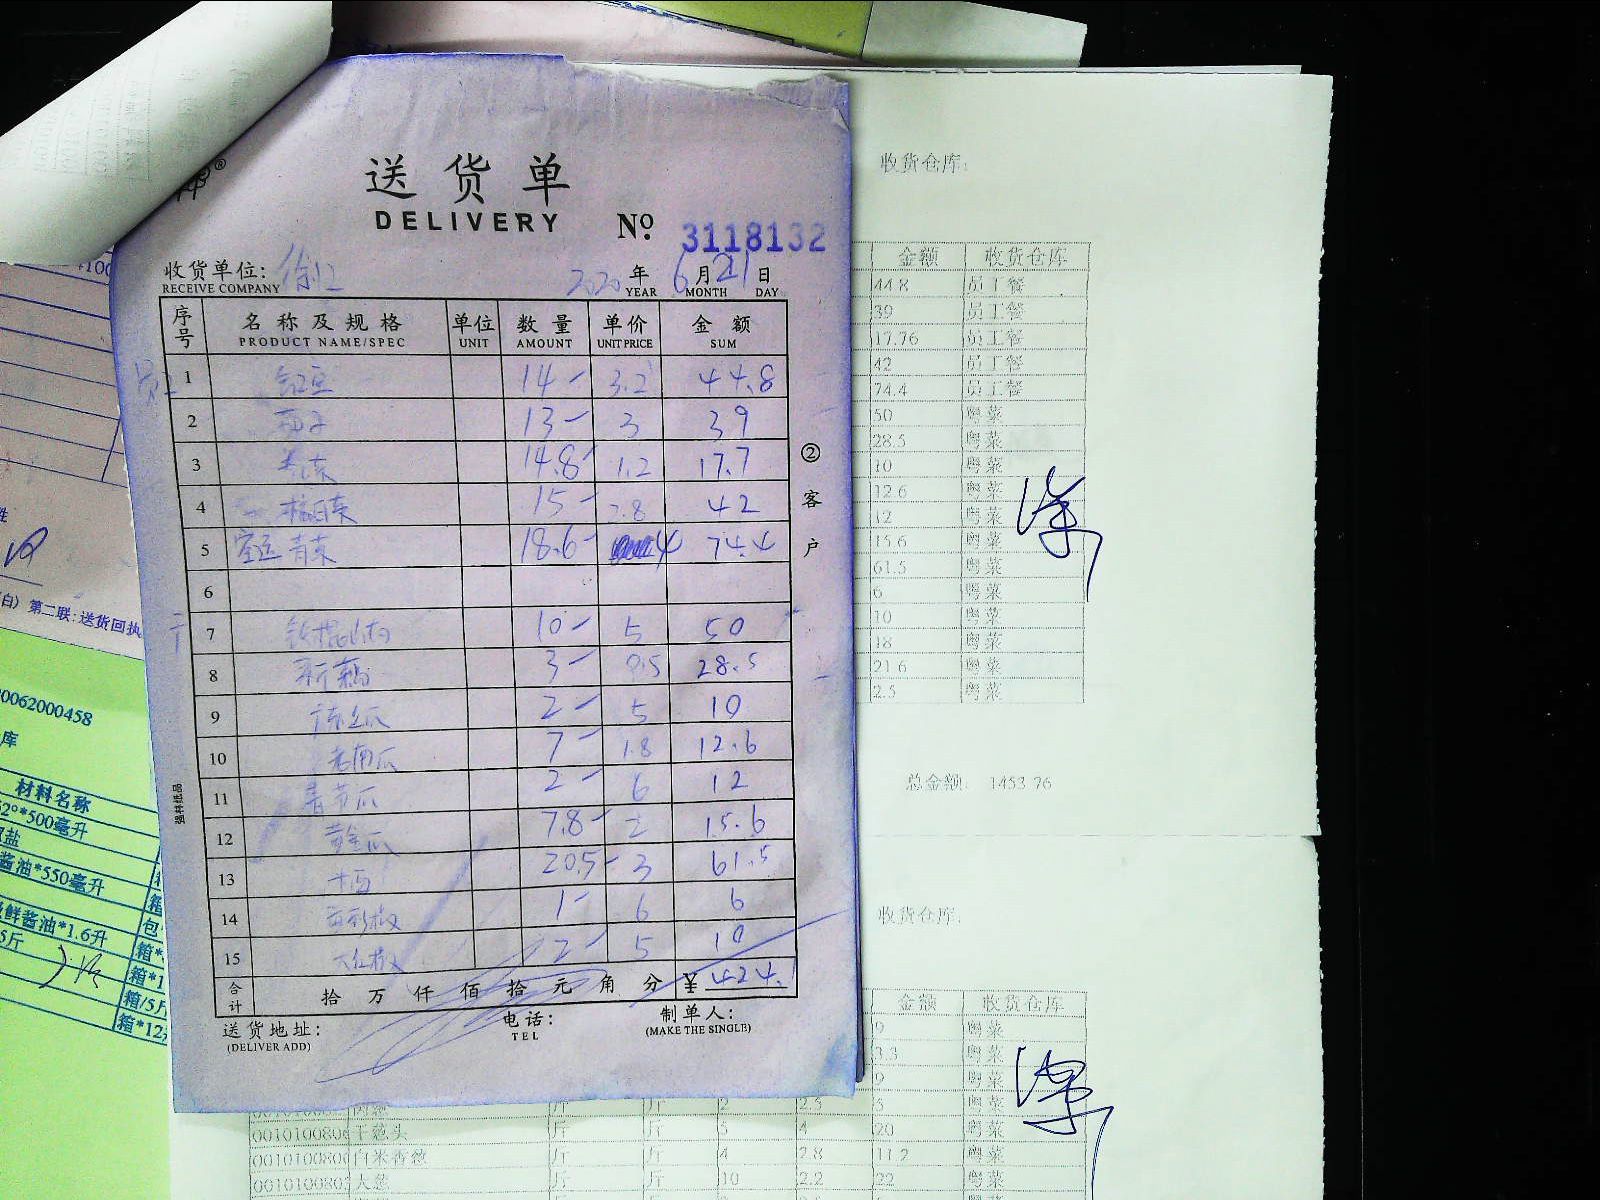 送货单
DELIVERY
№ 3118132
收货单位: 徐汇 2020年6月21日
RECEIVE COMPANY YEAR MONTH DAY
序号 名称及规格 单位 数量 单价 金额
PRODUCT NAME/SPEC UNIT AMOUNT UNIT PRICE SUM
1 豇豆 14 3.2 44.8
2 13 3 39
3 14.8 1.2 17.7
4 15 2.8 42
5 青菜 18.6 4 74.4
6
7 铁棍山药 10 5 50
8 新藕 3 9.5 28.5
9 丝瓜 2 5 10
10 老南瓜 7 1.8 12.6
11 青节瓜 2 6 12
12 黄金瓜 7.8 2 15.6
13 20.5 3 61.5
14 1 6 6
15 大红椒 2 5 10
合计 拾万仟佰拾元角分 ¥ 424.1
送货地址: 电话: 制单人:
(DELIVER ADD) TEL (MAKE THE SINGLE)
②客户
强林纸品
收货仓库:
金额 收货仓库
44.8 员工餐
39 员工餐
17.76 员工餐
42 员工餐
74.4 员工餐
50 粤菜
28.5 粤菜
10 粤菜
12.6 粤菜
12 粤菜
15.6 粤菜
61.5 粤菜
6 粤菜
10 粤菜
18 粤菜
21.6 粤菜
2.5 粤菜
总金额: 1453.76
收货仓库:
金额 收货仓库
9 粤菜
3.3 粤菜
9 粤菜
斤 斤 2 2.5 5 粤菜
干葱头 斤 斤 5 4 20 粤菜
白米香葱 斤 斤 4 2.8 11.2 粤菜
大葱 斤 斤 10 2.2 22 粤菜
(白) 第二联:送货回执
0062000458
库
材料名称
2°*500毫升
盐
酱油*550毫升
鲜酱油*1.6升
5斤
包
箱*
箱*1
箱/5斤
箱*12